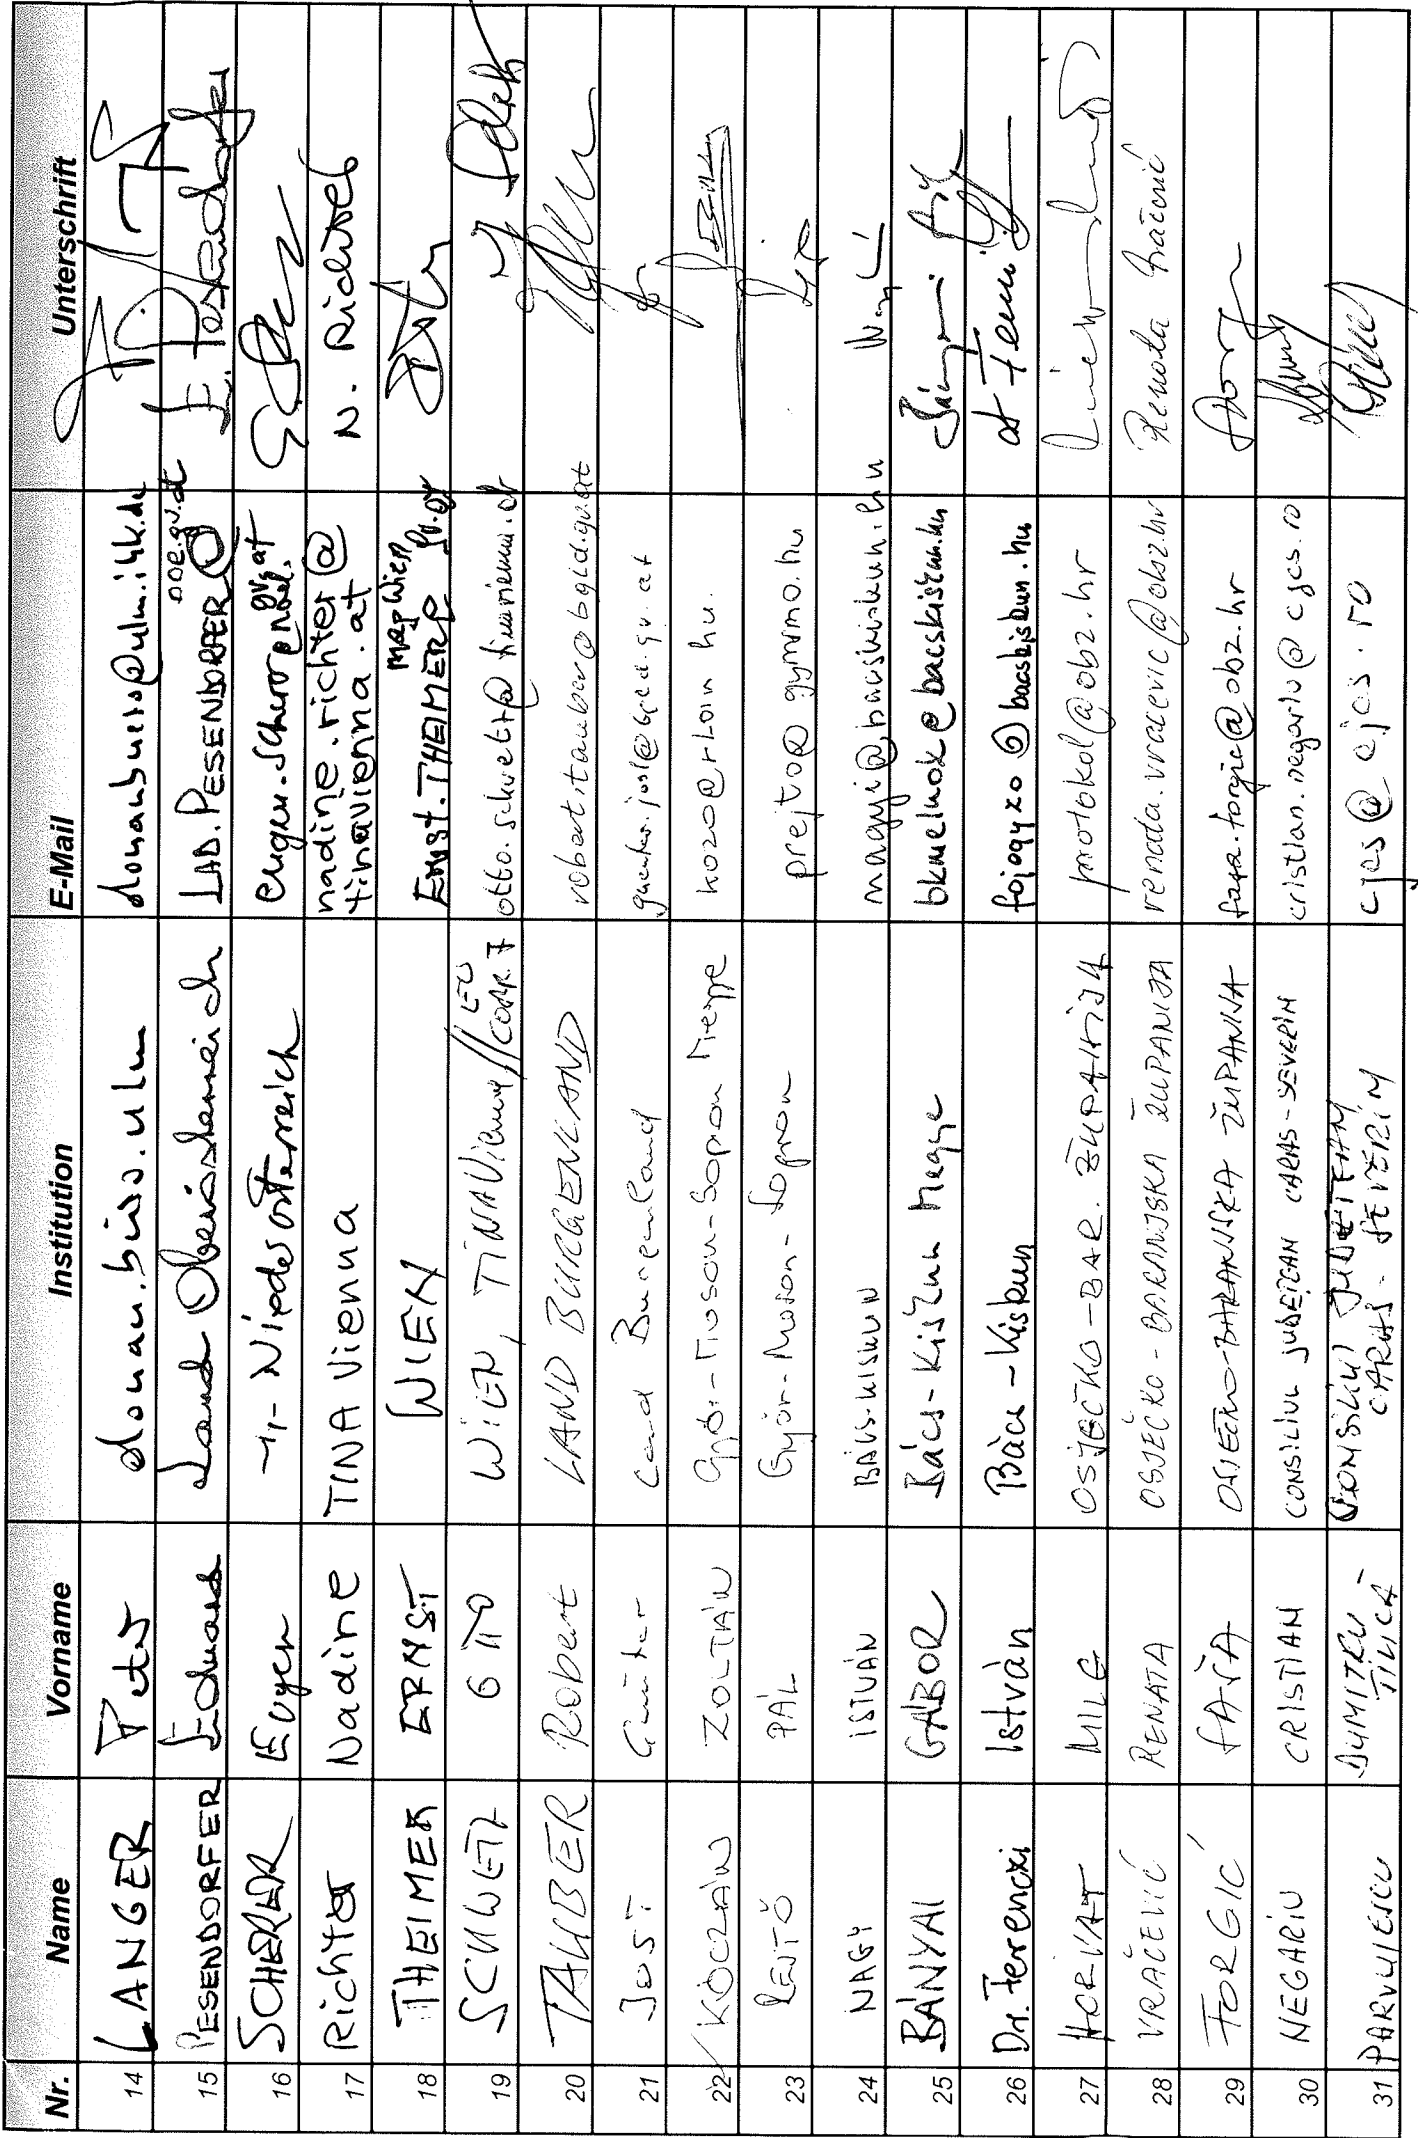 Nr. Name Vorname Institution E-Mail Unterschrift
14 LANGER Peter donau.büro.ulm donaubuero@ulm.ihk.de
15 PESENDORFER Eduard Land Oberösterreich LAD.PESENDORFER@ooe.gv.at E. Pesendorfer
16 SCHERER Eugen -"- Niederösterreich
17 Richter Nadine TINA Vienna nadine.richter@
tinavienna.at N. Richter
18 THEIMER ERNST WIEN Ernst.THEIMER@
19 SCHWETZ OTTO WIEN, TINAVienna//
20 TAUBER Robert LAND BURGENLAND robert.tauber@bgld.gv.at
21 JOST Günter Land Burgenland guenter.jost@bgld.gv.at
22 KOCZÁN ZOLTÁN Győr-Moson-Sopron Megye
23 PÁL Győr-Moson-Sopron prejto@gymsmo.hu
24 NAGY ISTVÁN BÁCS-KISKUN nagyi@bacskiskun.hu
25 BÁNYAI GÁBOR Bács-Kiskun Megye bkmelnok@bacskiskun.hu
26 Dr. Ferenczi István Bács-Kiskun fojegyzo@bacskiskun.hu
27 HORVAT MILE OSJEČKO-BAR. ŽUPANIJA protokol@obz.hr
28 VRAČEVIĆ RENATA OSJEČKO-BARANJSKA ŽUPANIJA renata.vracevic@obz.hr Renata Vračević
29 FORGIĆ SAŠA OSJEČKO-BARANJSKA ŽUPANIJA sasa.forgic@obz.hr
30 NEGARIU CRISTIAN CONSILIUL JUDEŢEAN CARAS-SEVERIN cristian.negariu@cjcs.ro
31 PARVULESCU DUMITRU-
TILICA CONSILIUL JUDEŢEAN
CARAS-SEVERIN cjcs@cjcs.ro